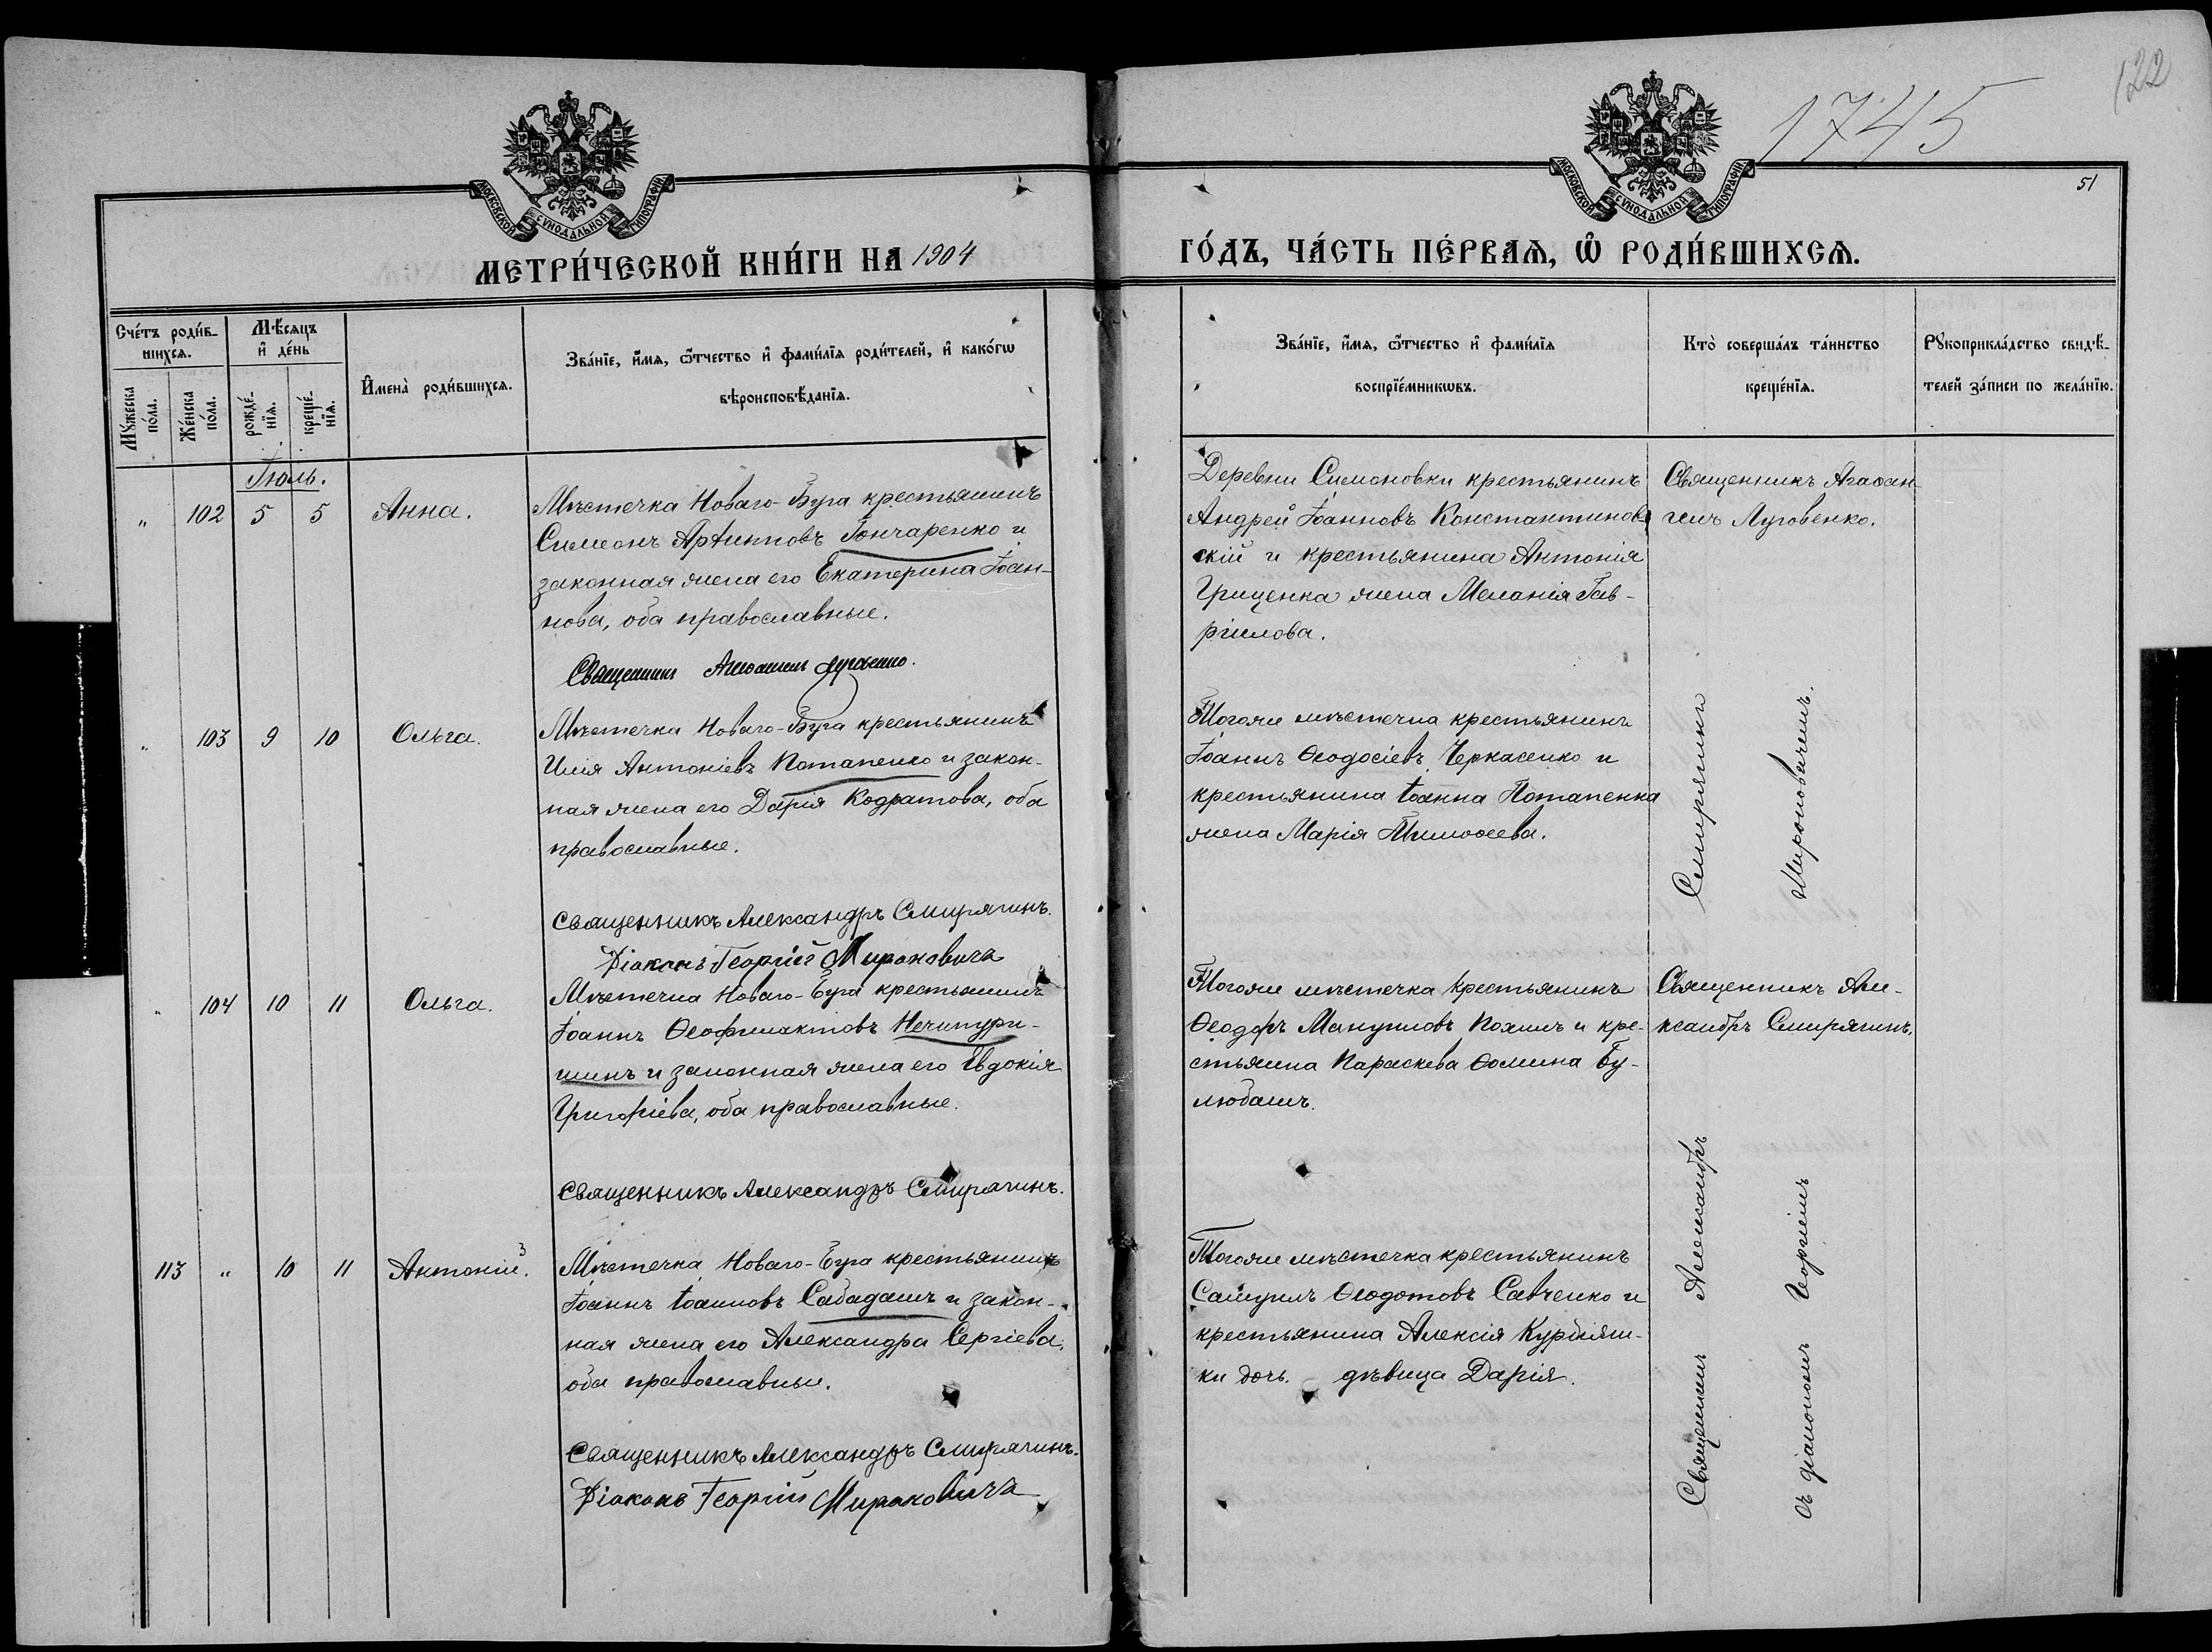 122
1745
51
МОСКОВСКОЙ СѴНОДАЛЬНОЙ ТИПОГРАФІИ
МОСКОВСКОЙ СѴНОДАЛЬНОЙ ТИПОГРАФІИ
МЕТРИ́ЧЕСКОЙ КНИ́ГИ НА 1904
ГО́ДЪ, ЧА́СТЬ ПЕ́РВАѦ, Ѡ҆ РОДИ́ВШИХСѦ.
Сче́тъ роди́в-
шихсѧ.
Му́жеска по́ла.
Же́нска по́ла.
Мѣ́сяцъ
и҆ де́нь
рожде́-
нїѧ.
креще́-
нїѧ.
И҆мена̀ роди́вшихсѧ.
Зва́нїе, и҆́мѧ, ѻ҆́тчество и҆ фами́лїѧ роди́телей, и҆ како́гѡ
вѣроисповѣ́данїѧ.
Зва́нїе, и҆́мѧ, ѻ҆́тчество и҆ фами́лїѧ
воспрїе́мникѡвъ.
Кто̀ соверша́лъ та́инство
креще́нїѧ.
Рꙋкоприкла́дство свидѣ́-
телей за́писи по жела́нїю.
Іюль.
" 102 5 5 Анна.
Мѣстечка Новаго-Буга крестьянинъ
Симеонъ Архиповъ Гончаренко и
законная жена его Екатерина Іоан-
нова, оба православные.
Священникъ Агаѳангелъ Луговенко.
Деревни Симоновки крестьянинъ
Андрей Іоанновъ Константинов-
скій и крестьянина Антонія
Гриценка жена Меланія Гав-
ріилова.
Священникъ Агаѳан-
гелъ Луговенко.
" 103 9 10 Ольга.
Мѣстечка Новаго-Буга крестьянинъ
Илія Антоніевъ Потапенко и закон-
ная жена его Дарія Кодратова, оба
православные.
Священникъ Александръ Смирягинъ.
Діаконъ Георгій Мироновичъ
Тогоже мѣстечка крестьянинъ
Іоаннъ Ѳеодосіевъ Черкасенко и
крестьянина Іоанна Потапенка
жена Марія Тимоѳеева.
" 104 10 11 Ольга.
Мѣстечка Новаго-Буга крестьянинъ
Іоаннъ Ѳеофилактовъ Нечитури-
шинъ и законная жена его Евдокія
Григоріева, оба православные.
Священникъ Александръ Смирягинъ.
Тогоже мѣстечка крестьянинъ
Ѳеодоръ Мануиловъ Похилъ и кре-
стьянка Параскева Ѳомина Бу-
любашъ.
Священникъ Але-
ксандръ Смирягинъ.
113 " 10 11 Антоній. 3
Мѣстечка Новаго-Буга крестьянинъ
Іоаннъ Іоанновъ Сабадашъ и закон-
ная жена его Александра Сергіева,
оба православные.
Священникъ Александръ Смирягинъ.
Діаконъ Георгій Мироновичъ
Тогоже мѣстечка крестьянинъ
Самуилъ Ѳеодотовъ Савченко и
крестьянина Алексія
ки дочь. дѣвица Дарія.
Священникъ Александръ Смирягинъ
съ діакономъ Георгіемъ Мироновичемъ.